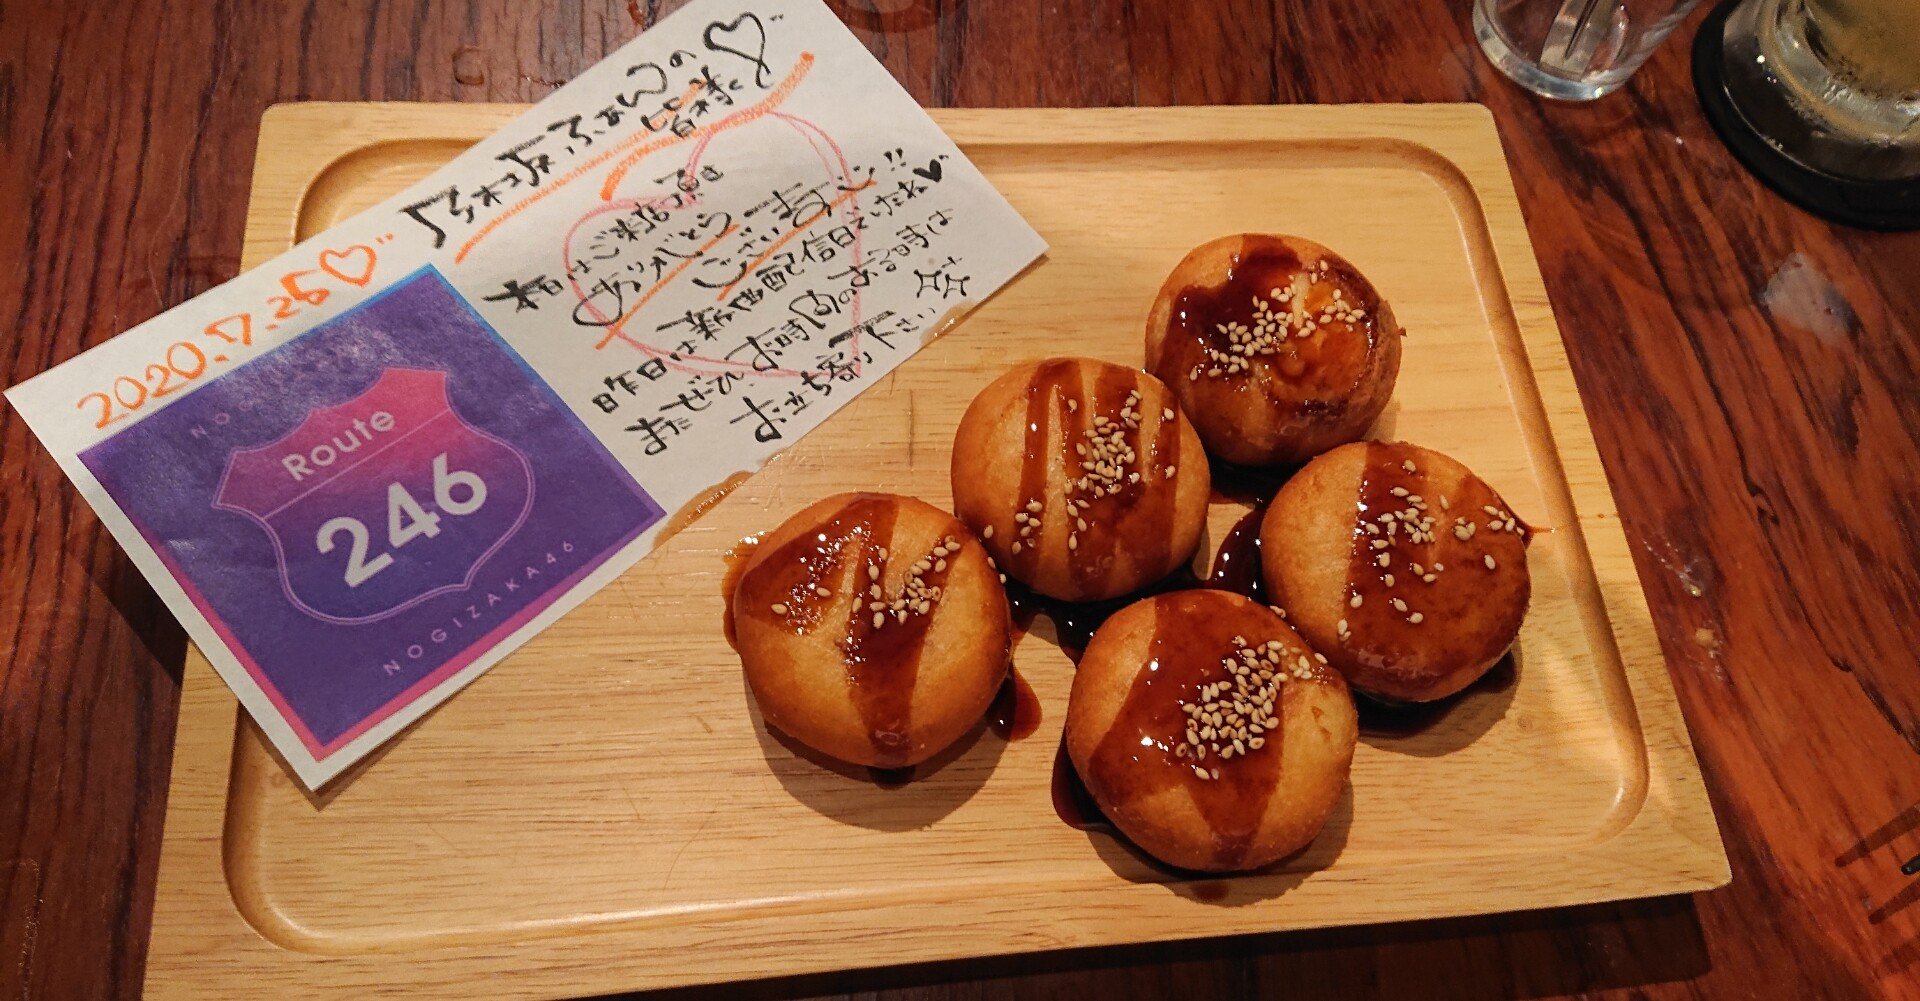 乃木坂ふぁんの
皆様へ♡
2020.7.25♡
本日はご来店頂き
ありがとうございます!!
昨日は新曲配信日でしたね♥
またぜひ、お時間のある時は
お立ち寄り下さい☆☆
Route
246
NOGIZAKA46